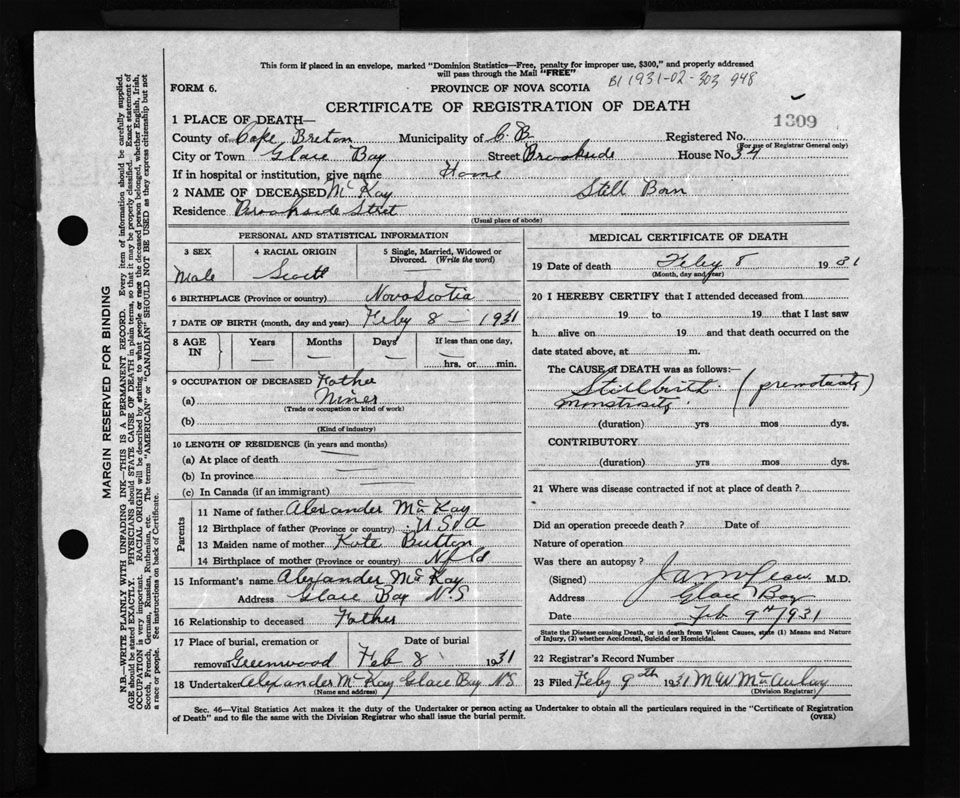 This form if placed in an envelope, marked "Dominion Statistics—Free, penalty for improper use, $300," and properly addressed
will pass through the Mail "FREE"
B1 1931-02-303 948
FORM 6.
PROVINCE OF NOVA SCOTIA
CERTIFICATE OF REGISTRATION OF DEATH
1309
1 PLACE OF DEATH—
County of Cape Breton Municipality of C.B. Registered No.
(For use of Registrar General only)
City or Town Glace Bay Street Brookside House No. 34
If in hospital or institution, give name Home
2 NAME OF DECEASED McKay Still Born
Residence Brookside Stret
(Usual place of abode)
PERSONAL AND STATISTICAL INFORMATION
3 SEX
Male
4 RACIAL ORIGIN
Scott
5 Single, Married, Widowed or
Divorced. (Write the word)
6 BIRTHPLACE (Province or country) Nova Scotia
7 DATE OF BIRTH (month, day and year) Feby 8 - 1931
8 AGE
IN
Years
Months
Days
If less than one day,
hrs. or min.
9 OCCUPATION OF DECEASED Father
(a) Miner
(Trade or occupation or kind of work)
(b)
(Kind of industry)
10 LENGTH OF RESIDENCE (in years and months)
(a) At place of death
(b) In province
(c) In Canada (if an immigrant)
Parents
11 Name of father Alexander McKay
12 Birthplace of father (Province or country) USA
13 Maiden name of mother Kate Button
14 Birthplace of mother (Province or country) Nfld
15 Informant's name Alexander McKay
Address Glace Bay N.S
16 Relationship to deceased Father
17 Place of burial, cremation or
removal Greenwood
Date of burial
Feb 8 1931
18 Undertaker Alexander McKay Glace Bay N.S.
(Name and address)
MEDICAL CERTIFICATE OF DEATH
19 Date of death Feby 8 1931
(Month, day and year)
20 I HEREBY CERTIFY that I attended deceased from
19 to 19 that I last saw
h alive on 19 and that death occurred on the
date stated above, at m.
The CAUSE of DEATH was as follows:—
Stillbirth (prematurity)
monstrosity
(duration) yrs mos dys.
CONTRIBUTORY
(duration) yrs mos dys.
21 Where was disease contracted if not at place of death?
Did an operation precede death? Date of
Nature of operation
Was there an autopsy?
(Signed) M.D.
Address Glace Bay
Date Feb 9th 1931
State the Disease causing Death, or in death from Violent Causes, state (1) Means and Nature
of Injury, (2) whether Accidental, Suicidal or Homicidal.
22 Registrar's Record Number
23 Filed Feby 9th 1931 M W McAulay
(Division Registrar)
Sec. 46—Vital Statistics Act makes it the duty of the Undertaker or person acting as Undertaker to obtain all the particulars required in the "Certificate of Registration
of Death" and to file the same with the Division Registrar who shall issue the burial permit.
(OVER)
MARGIN RESERVED FOR BINDING
N.B.—WRITE PLAINLY WITH UNFADING INK—THIS IS A PERMANENT RECORD. Every item of information should be carefully supplied.
AGE should be stated EXACTLY. PHYSICIANS should STATE CAUSE OF DEATH in plain terms, so that it may be properly classified. Exact statement of
OCCUPATION is very important. RACIAL ORIGIN will be described by stating to what people or race the deceased person belonged, whether English, Irish,
Scotch, French, German, Russian, Ruthenian, etc. The terms "AMERICAN" or "CANADIAN" SHOULD NOT BE USED as they express citizenship but not
a race or people. See instructions on back of Certificate.